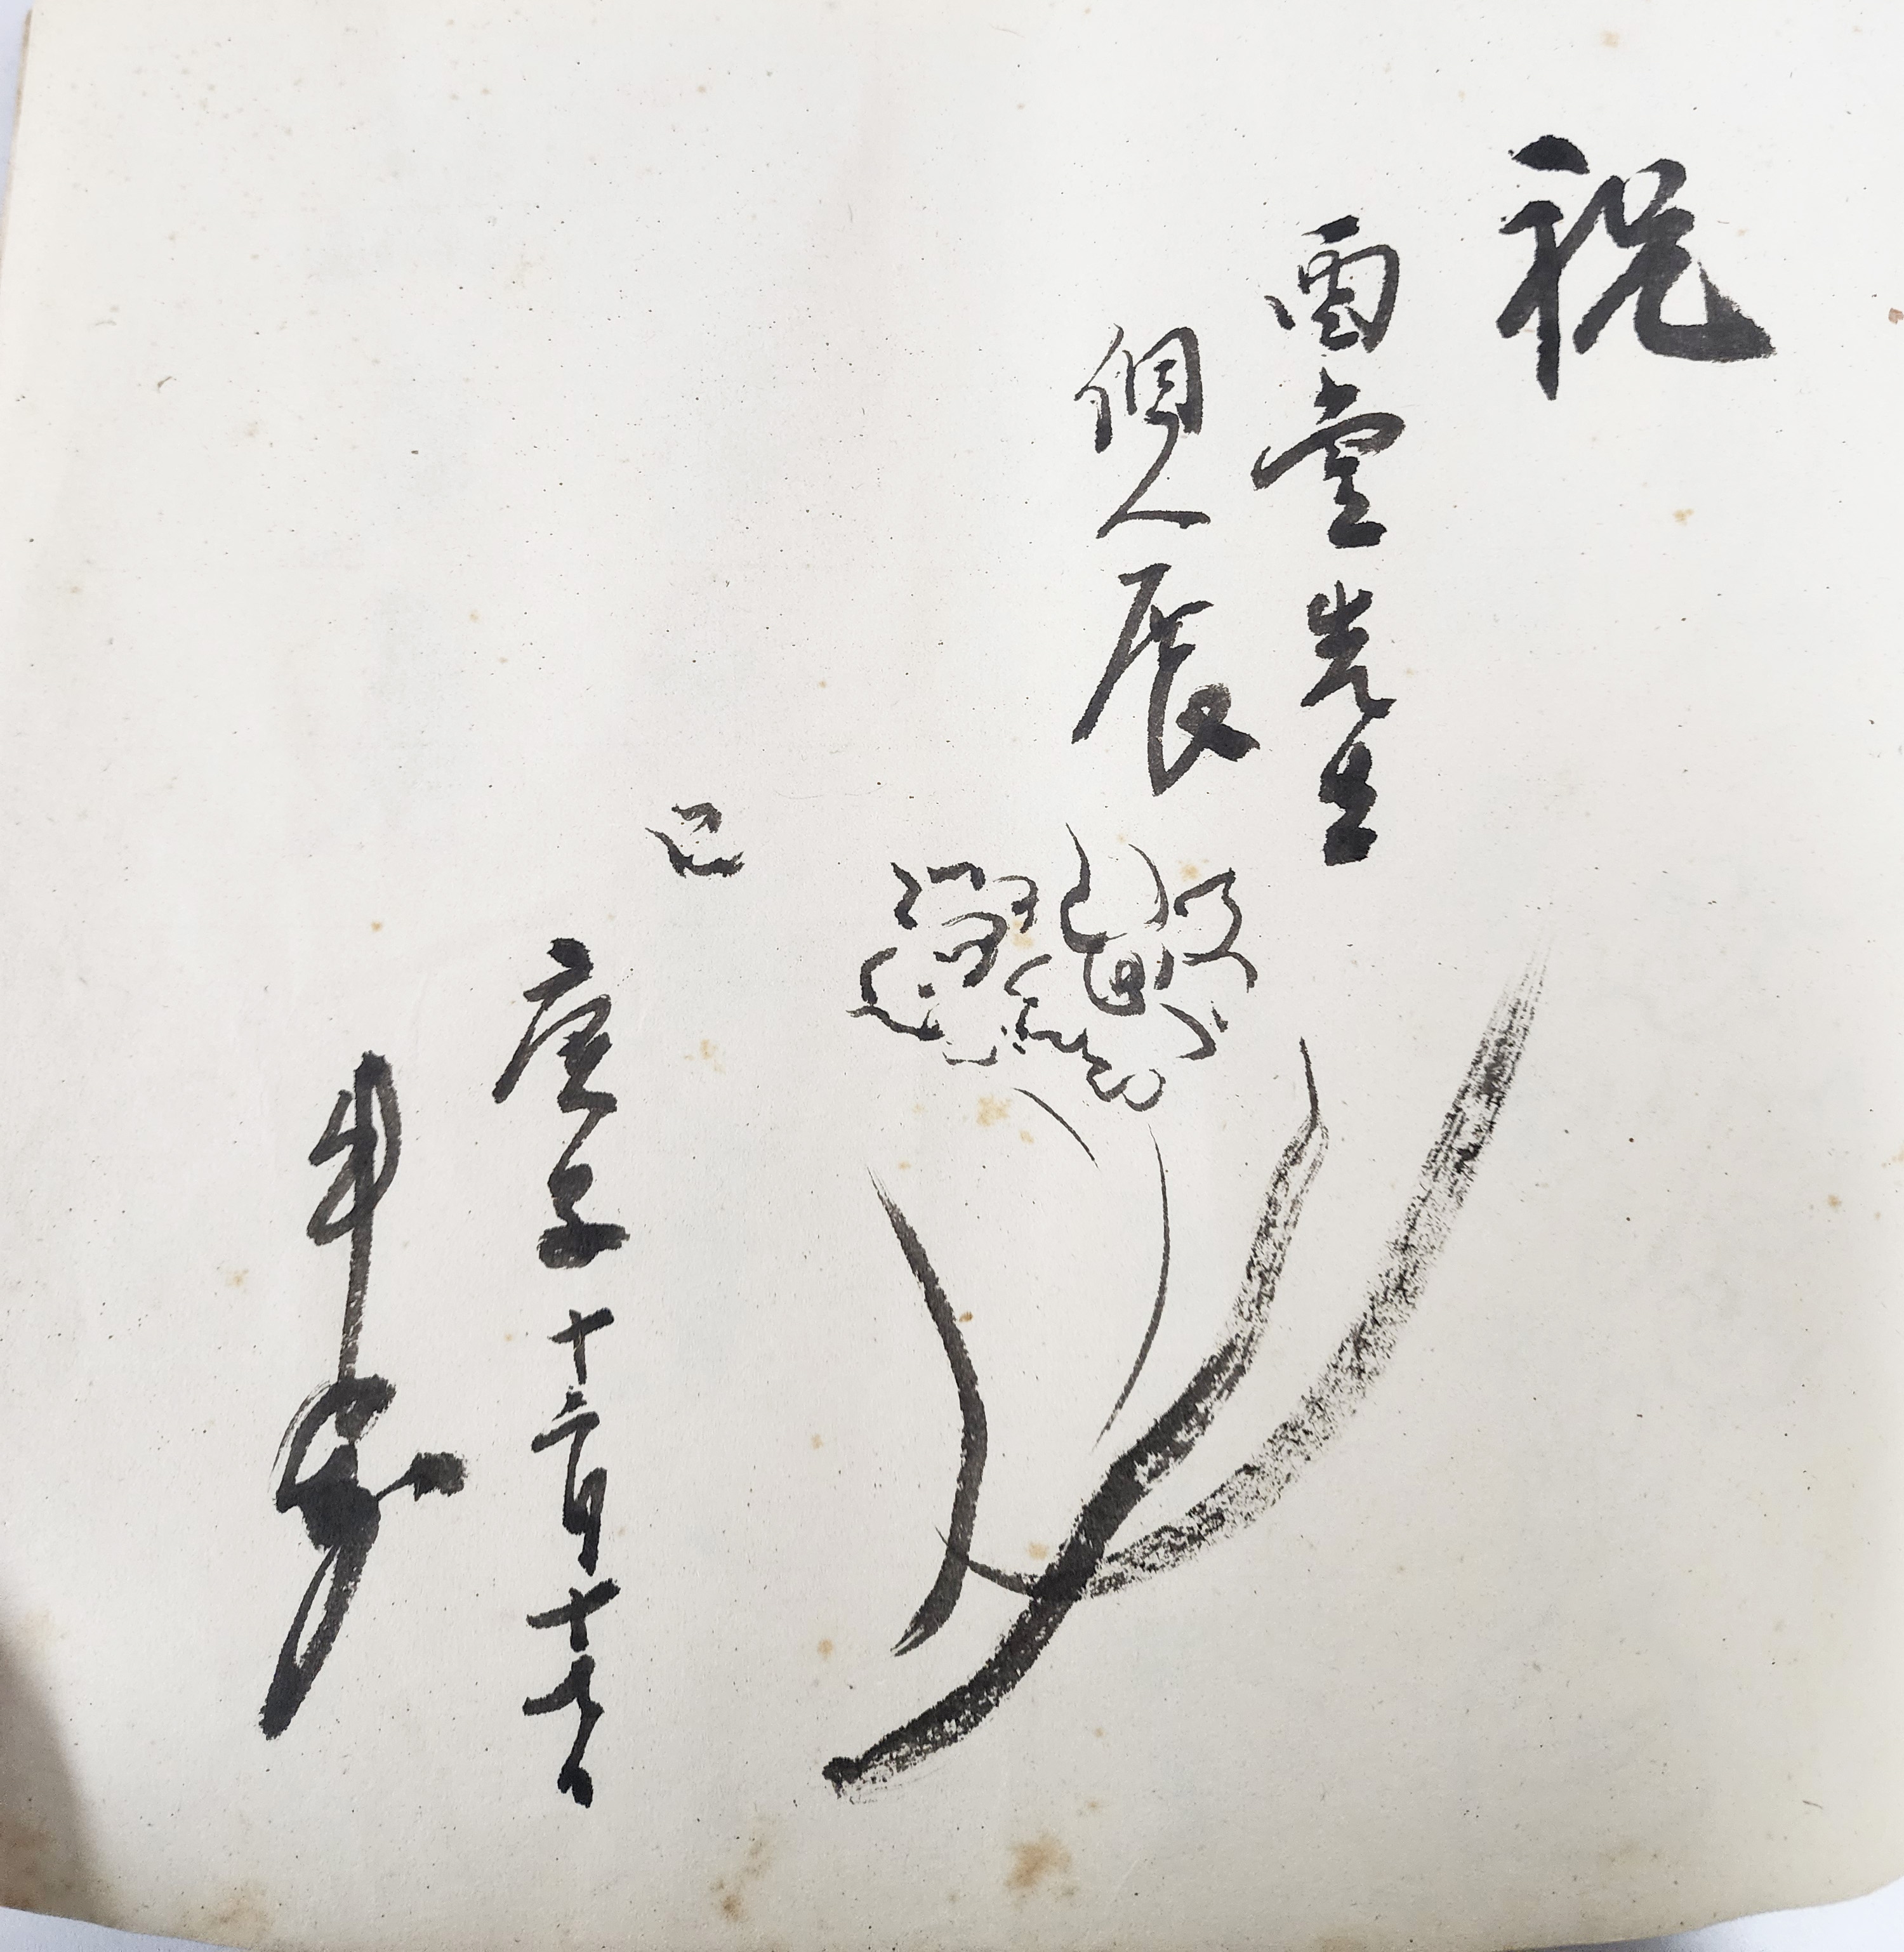 祝
雨堂先生
個人展
庚子十二月十七日